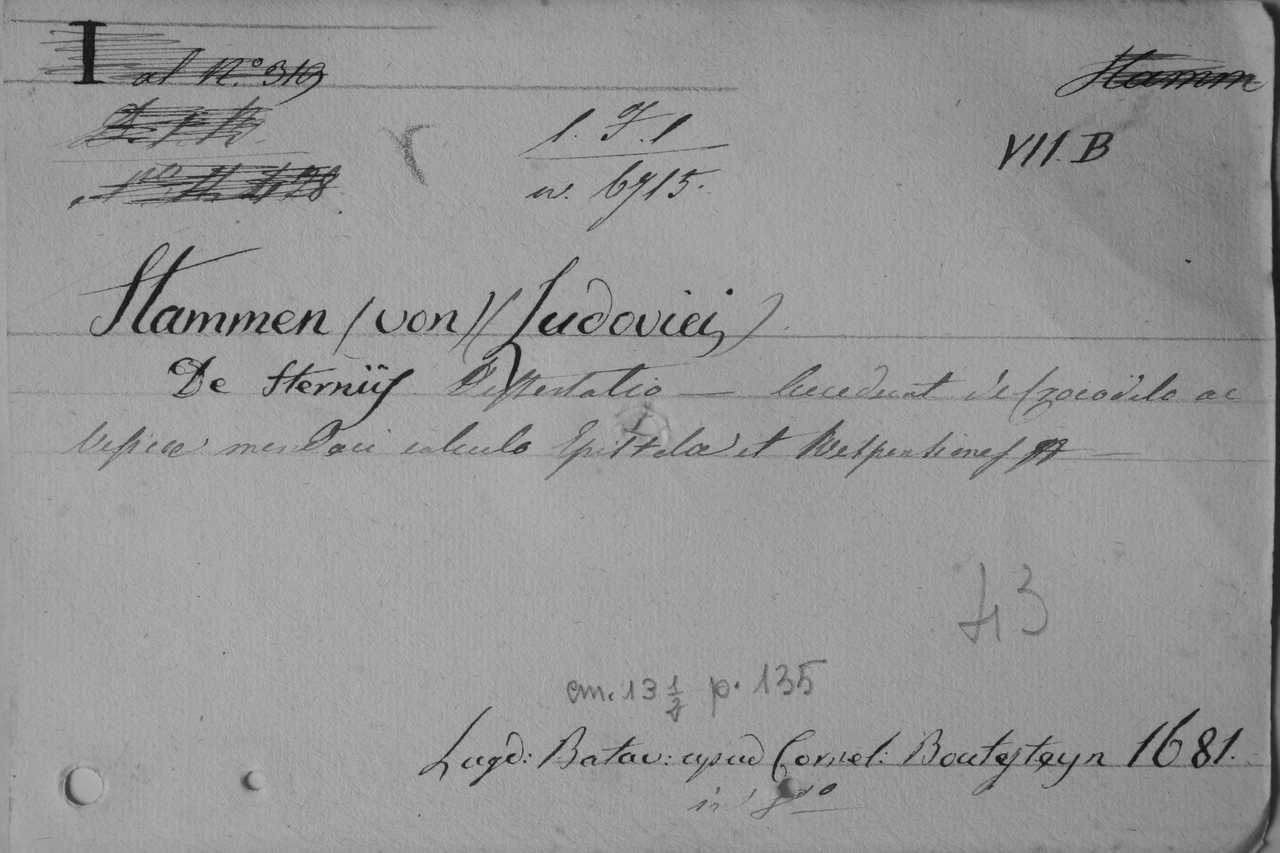 I al N.º 319
Stamm
l. F. 1
VII. B
n. 6715.
Stammen (von) (Ludovici)
De Hernijs Dissertatio — Accedunt de Crocodilo ac
Vesicae mendaci calculo Epistolae et Responsiones
43
cm. 13 ½ p. 135
Lugd: Batav: apud Cornel: Boutesteyn 1681.
in 8vo